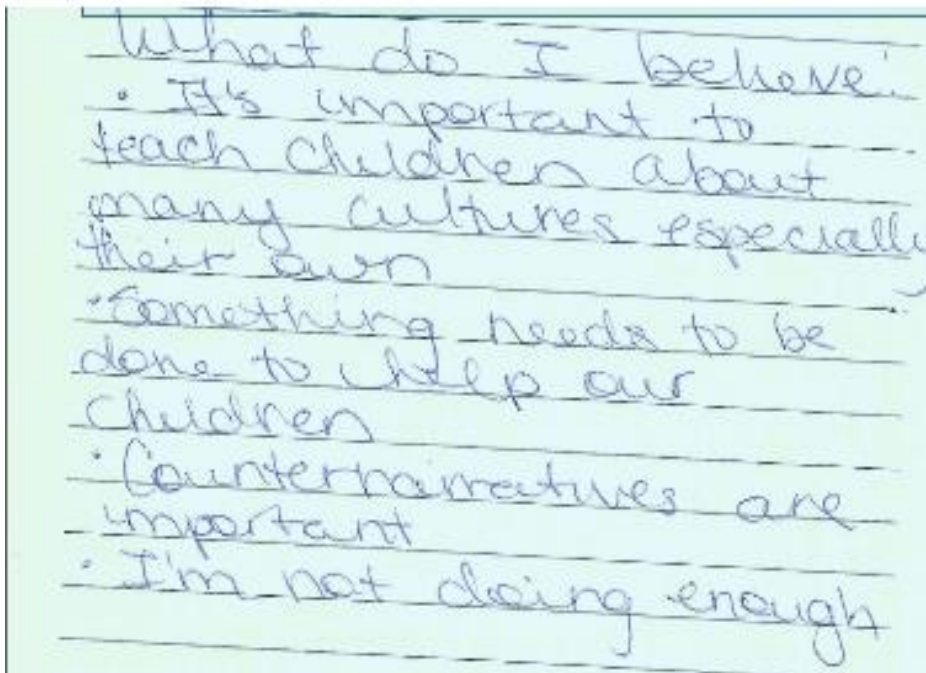 What do I believe:
· It's important to
teach children about
many cultures especially
their own
· Something needs to be
done to help our
children
· Counternarratives are
important
· I'm not doing enough